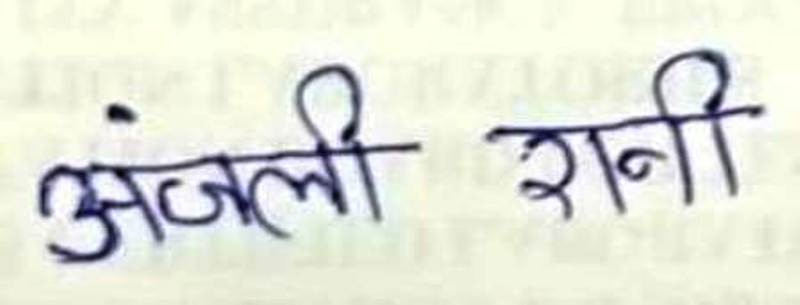 अंजली रानी